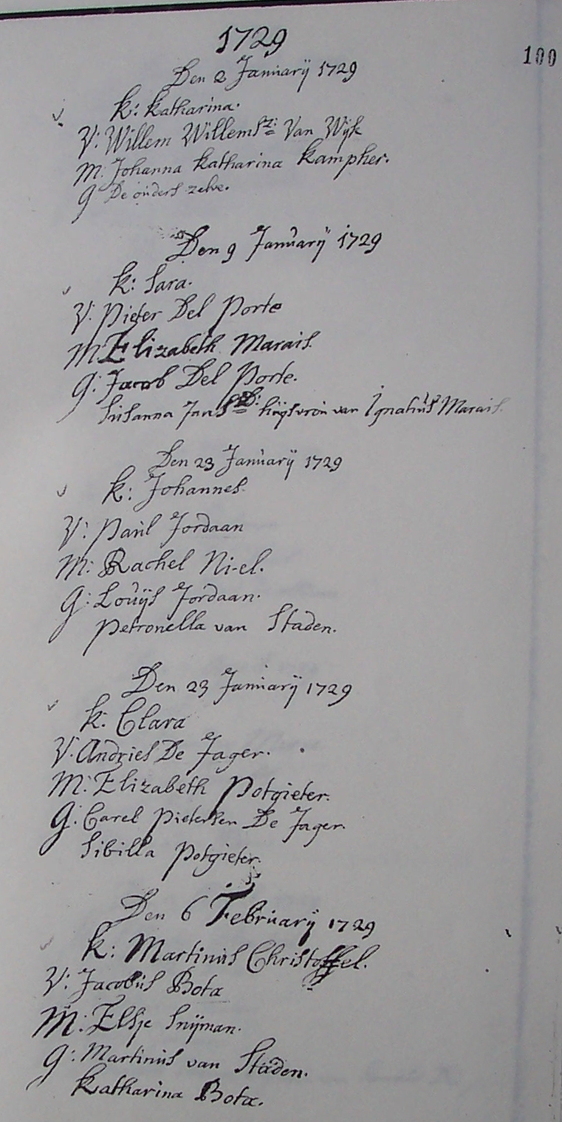 1729
100
Den 2 Januarij 1729
k: katharina.
V: Willem Willemsz: Van Wijk
M: Johanna katharina kampher.
G De ouders zelve.
Den 9 Januarij 1729
k: Sara.
V: Pieter Del Porte
M Elizabeth Marais.
G: Jacob Del Porte.
Susanna Jans D: huijsvrou van Ignatius Marais.
Den 23 Januarij 1729
k: Johannes
V: Paul Jordaan
M: Rachel Ni-el.
G: Louijs Jordaan.
Petronella van Staden.
Den 23 Januarij 1729
k: Clara
V: Andries De Jager.
M: Elizabeth Potgieter.
G: Carel Pietersen De Jager.
Sibilla Potgieter.
Den 6 Februarij 1729
k: Martinus Christoffel.
V: Jacobus Bota
M: Elsje Snijman.
G: Martinus van Staden.
Katharina Bota.